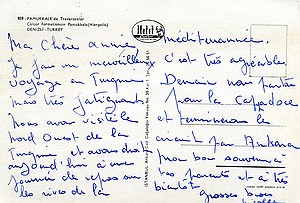 609 - PAMUKKALE'de Travertenler
Colour Formationsin Pamukkale (Hierpolis)
DENİZLİ - TURKEY
Ma Chère Annie
je fais un merveilleux
voyage en Turquie
mais très fatigant
nous avons visité le
nord Ouest de la
Turquie et avons droit
aujourd'hui à une
journée de repos sur
les rives de la
méditerranée
c'est très agréable.
Demain nous partons
pour la Cappadoce
et terminerons le
circuit par Ankara
mon bon souvenir à
tes parents et à très
bientôt
grosses bises